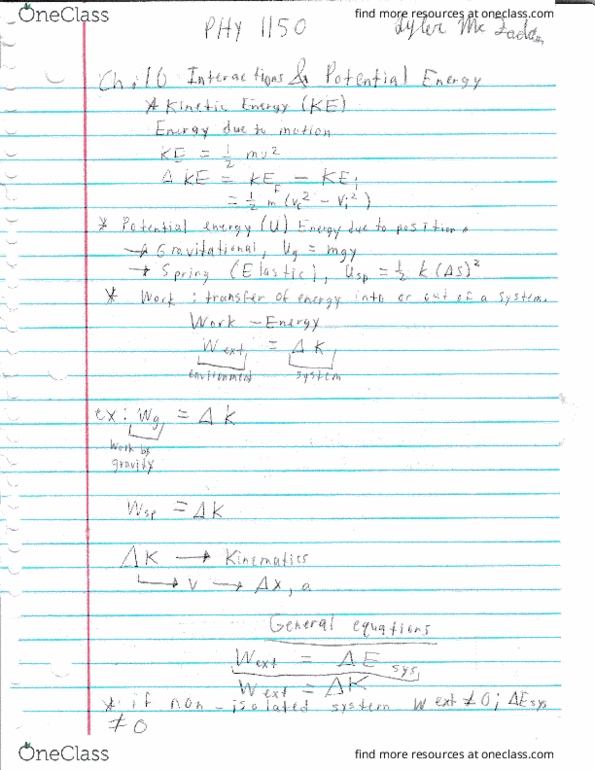 OneClass
find more resources at oneclass.com
PHY 1150
Tyler Mc
Ch. 10 Interactions & Potential Energy
* Kinetic Energy (KE)
Energy due to motion
KE = 1/2 mv²
Δ KE = KE_F - KE_i
= 1/2 m (v_f² - v_i²)
* Potential energy (U) Energy due to position.
→ Gravitational, Ug = mgy
→ Spring (Elastic), Usp = 1/2 k (Δs)²
* Work : transfer of energy into or out of a system.
Work - Energy
W ext = Δ K
environment system
ex: Wg = Δ K
Work by
gravity
Wsp = Δ K
Δ K → Kinematics
→ v → Δx, a
General equations
W ext = Δ E sys
W ext = Δ K
* if non-isolated system W ext ≠ 0; ΔE sys
≠ 0
OneClass
find more resources at oneclass.com